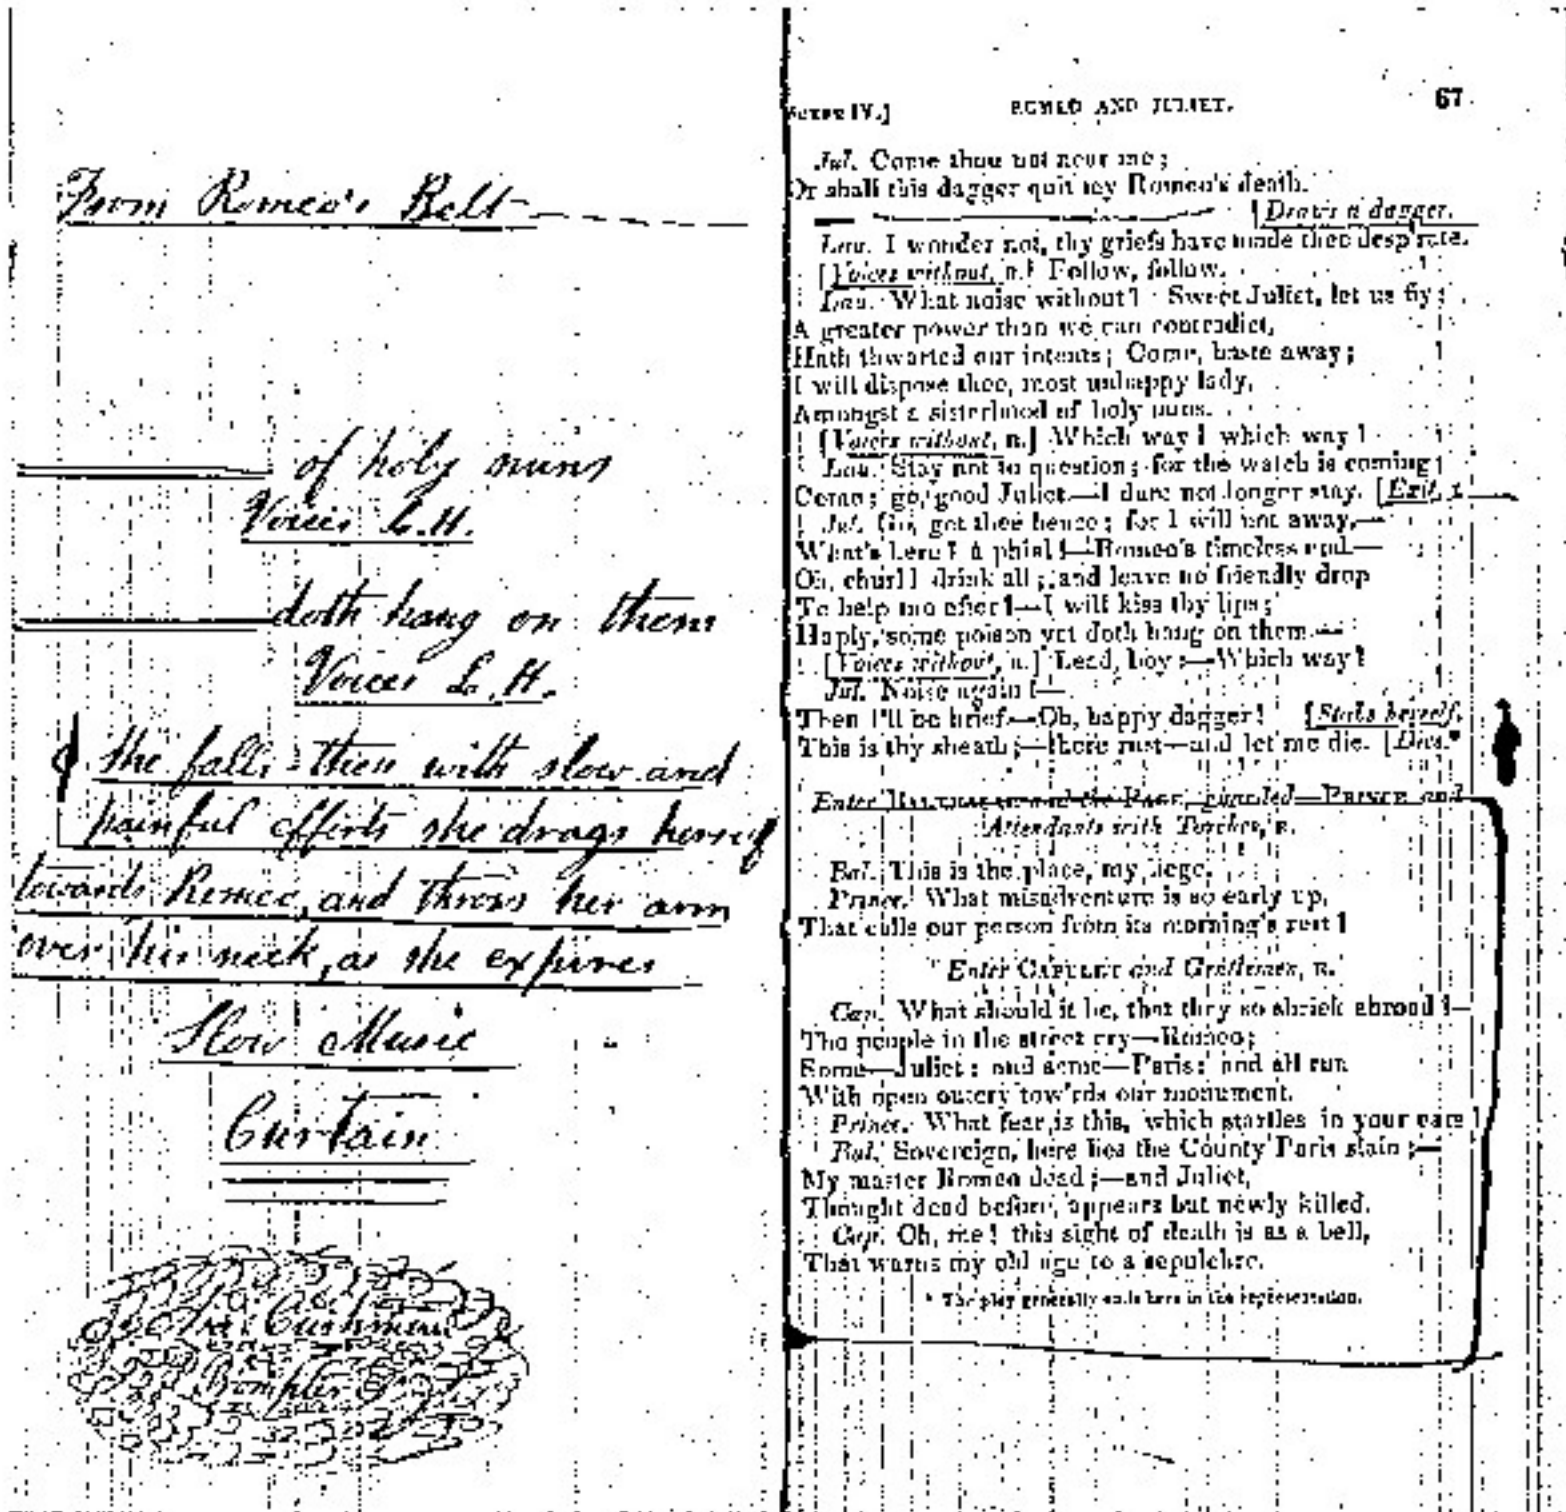 From Romeo's Belt
of holy nuns
Voices L.H.
doth hang on them
Voices L.H.
She falls then with slow and
painful efforts she drags herself
towards Romeo, and throws her arm
over his neck, as she expires
Slow Music
Curtain
Cushman
SCENE IV.] ROMEO AND JULIET. 67
Jul. Come thou not near me;
Or shall this dagger quit my Romeo's death.
[Draws a dagger.
Lau. I wonder not, thy griefs have made thee desp'rate.
[Voices without, R.] Follow, follow.
Lau. What noise without? Sweet Juliet, let us fly;
A greater power than we can contradict,
Hath thwarted our intents; Come, haste away;
I will dispose thee, most unhappy lady,
Amongst a sisterhood of holy nuns.
[Voices without, R.] Which way? which way?
Lau. Stay not to question; for the watch is coming;
Come; go, good Juliet.—I dare not longer stay. [Exit,
Jul. Go, get thee hence; for I will not away.—
What's here? a phial!—Romeo's timeless end.—
Oh, churl! drink all; and leave no friendly drop
To help me after?—I will kiss thy lips;
Haply, some poison yet doth hang on them.—
[Voices without, R.] Lead, boy;—Which way?
Jul. Noise again!—
Then I'll be brief.—Oh, happy dagger! [Stabs herself.
This is thy sheath;—there rust—and let me die. [Dies.*
Enter BALTHASAR and the PAGE, guarded—PRINCE and
Attendants with Torches, R.
Bal. This is the place, my liege.
Prince. What misadventure is so early up,
That calls our person from its morning's rest?
Enter CAPULET and Gentlemen, R.
Cap. What should it be, that they so shriek abroad?—
The people in the street cry—Romeo;
Some—Juliet; and some—Paris; and all run
With open outcry tow'rds our monument.
Prince. What fear is this, which startles in your ears?
Bal. Sovereign, here lies the County Paris slain;—
My master Romeo dead;—and Juliet,
Thought dead before, appears but newly killed.
Cap. Oh, me! this sight of death is as a bell,
That warns my old age to a sepulchre.
* The play generally ends here in the representation.